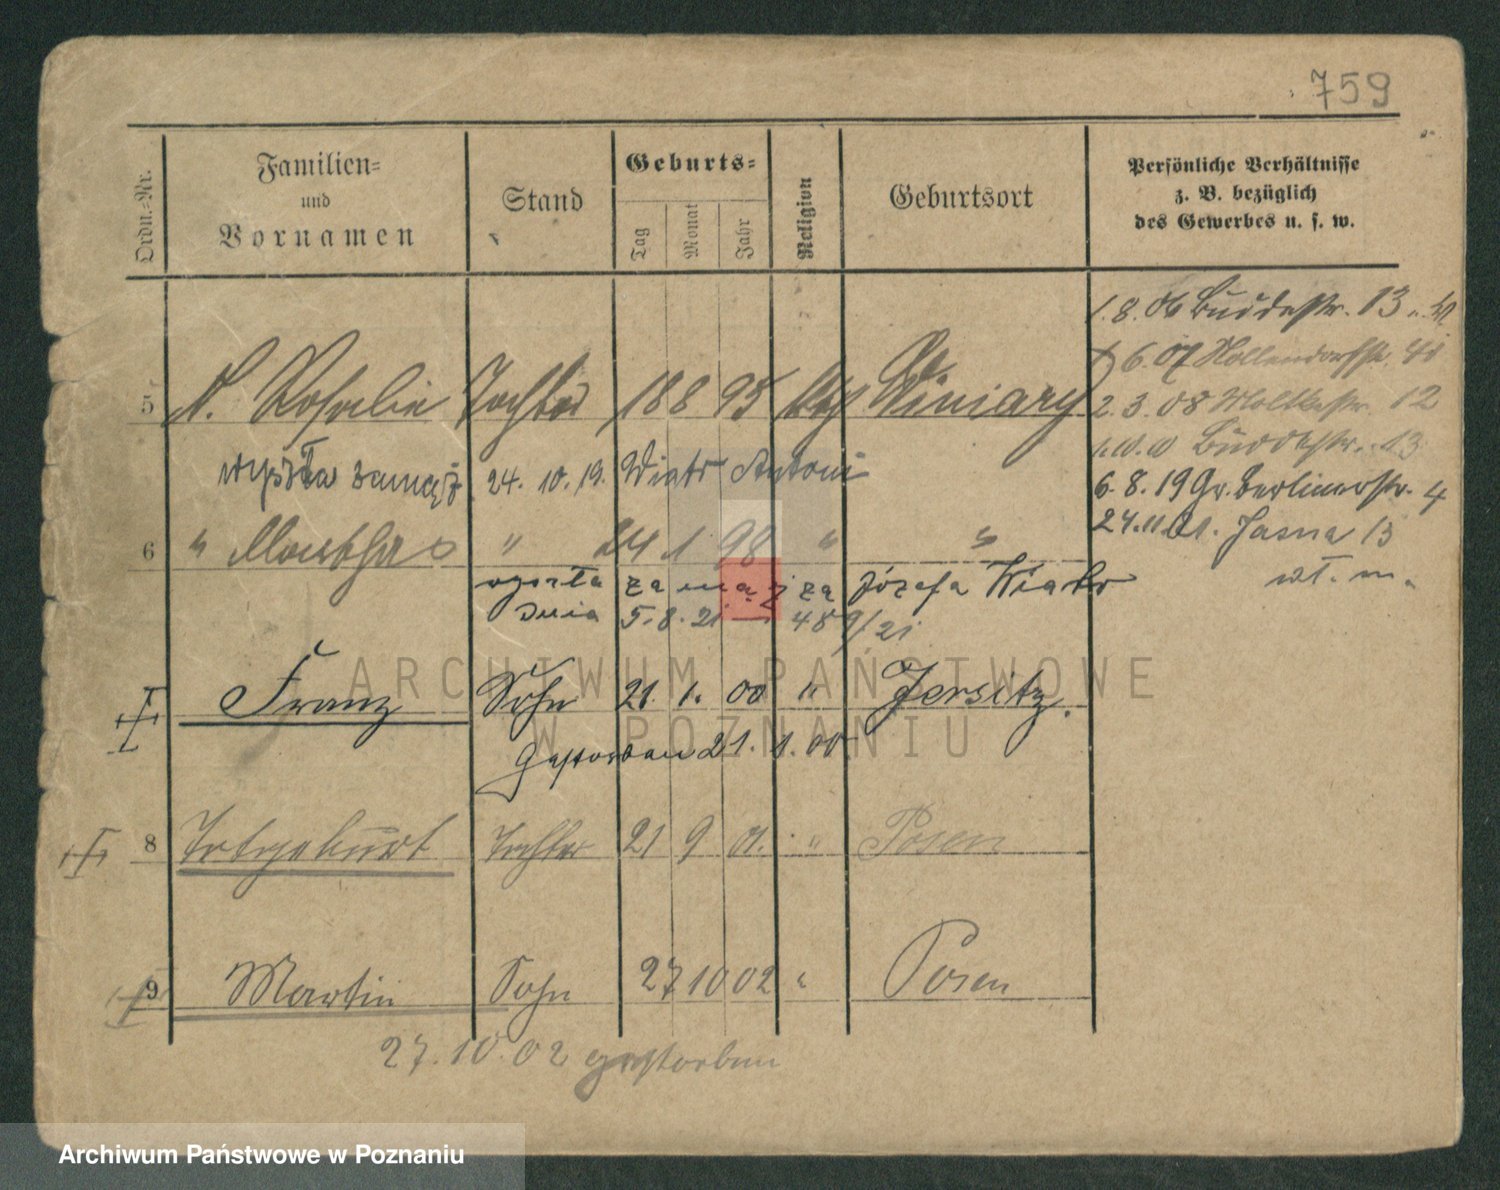 759
Ordn.-Nr. Familien- und Vornamen Stand Geburts- Tag Monat Jahr Religion Geburtsort Persönliche Verhältnisse z. B. bezüglich des Gewerbes u. s. w.
1.8.06 Buddestr. 13
6.07 Hollendorfstr.
2.3.08 Moltkestr. 12
Buddestr. 13
6.8.19 Gr. Berlinerstr. 4
24.11.21. Jasna 13
wł. m.
5 Rosalie Tochter 18 8 95 kath Winiary
wyszła zamąż 24.10.19. Wiatr Antoni
6 " Martha " 24 1 98 " "
wyszła za mąż za Józefa Wiatr
dnia 5.8.21 — 489/21
Franz Sohn 21. 1. 00 " Jersitz.
Gestorben 21.1.00
8 Totgeburt Tochter 21 9 01. " Posen
9 Martin Sohn 27 10 02 " Posen
27.10.02 gestorben
ARCHIWUM PAŃSTWOWE
W POZNANIU
Archiwum Państwowe w Poznaniu